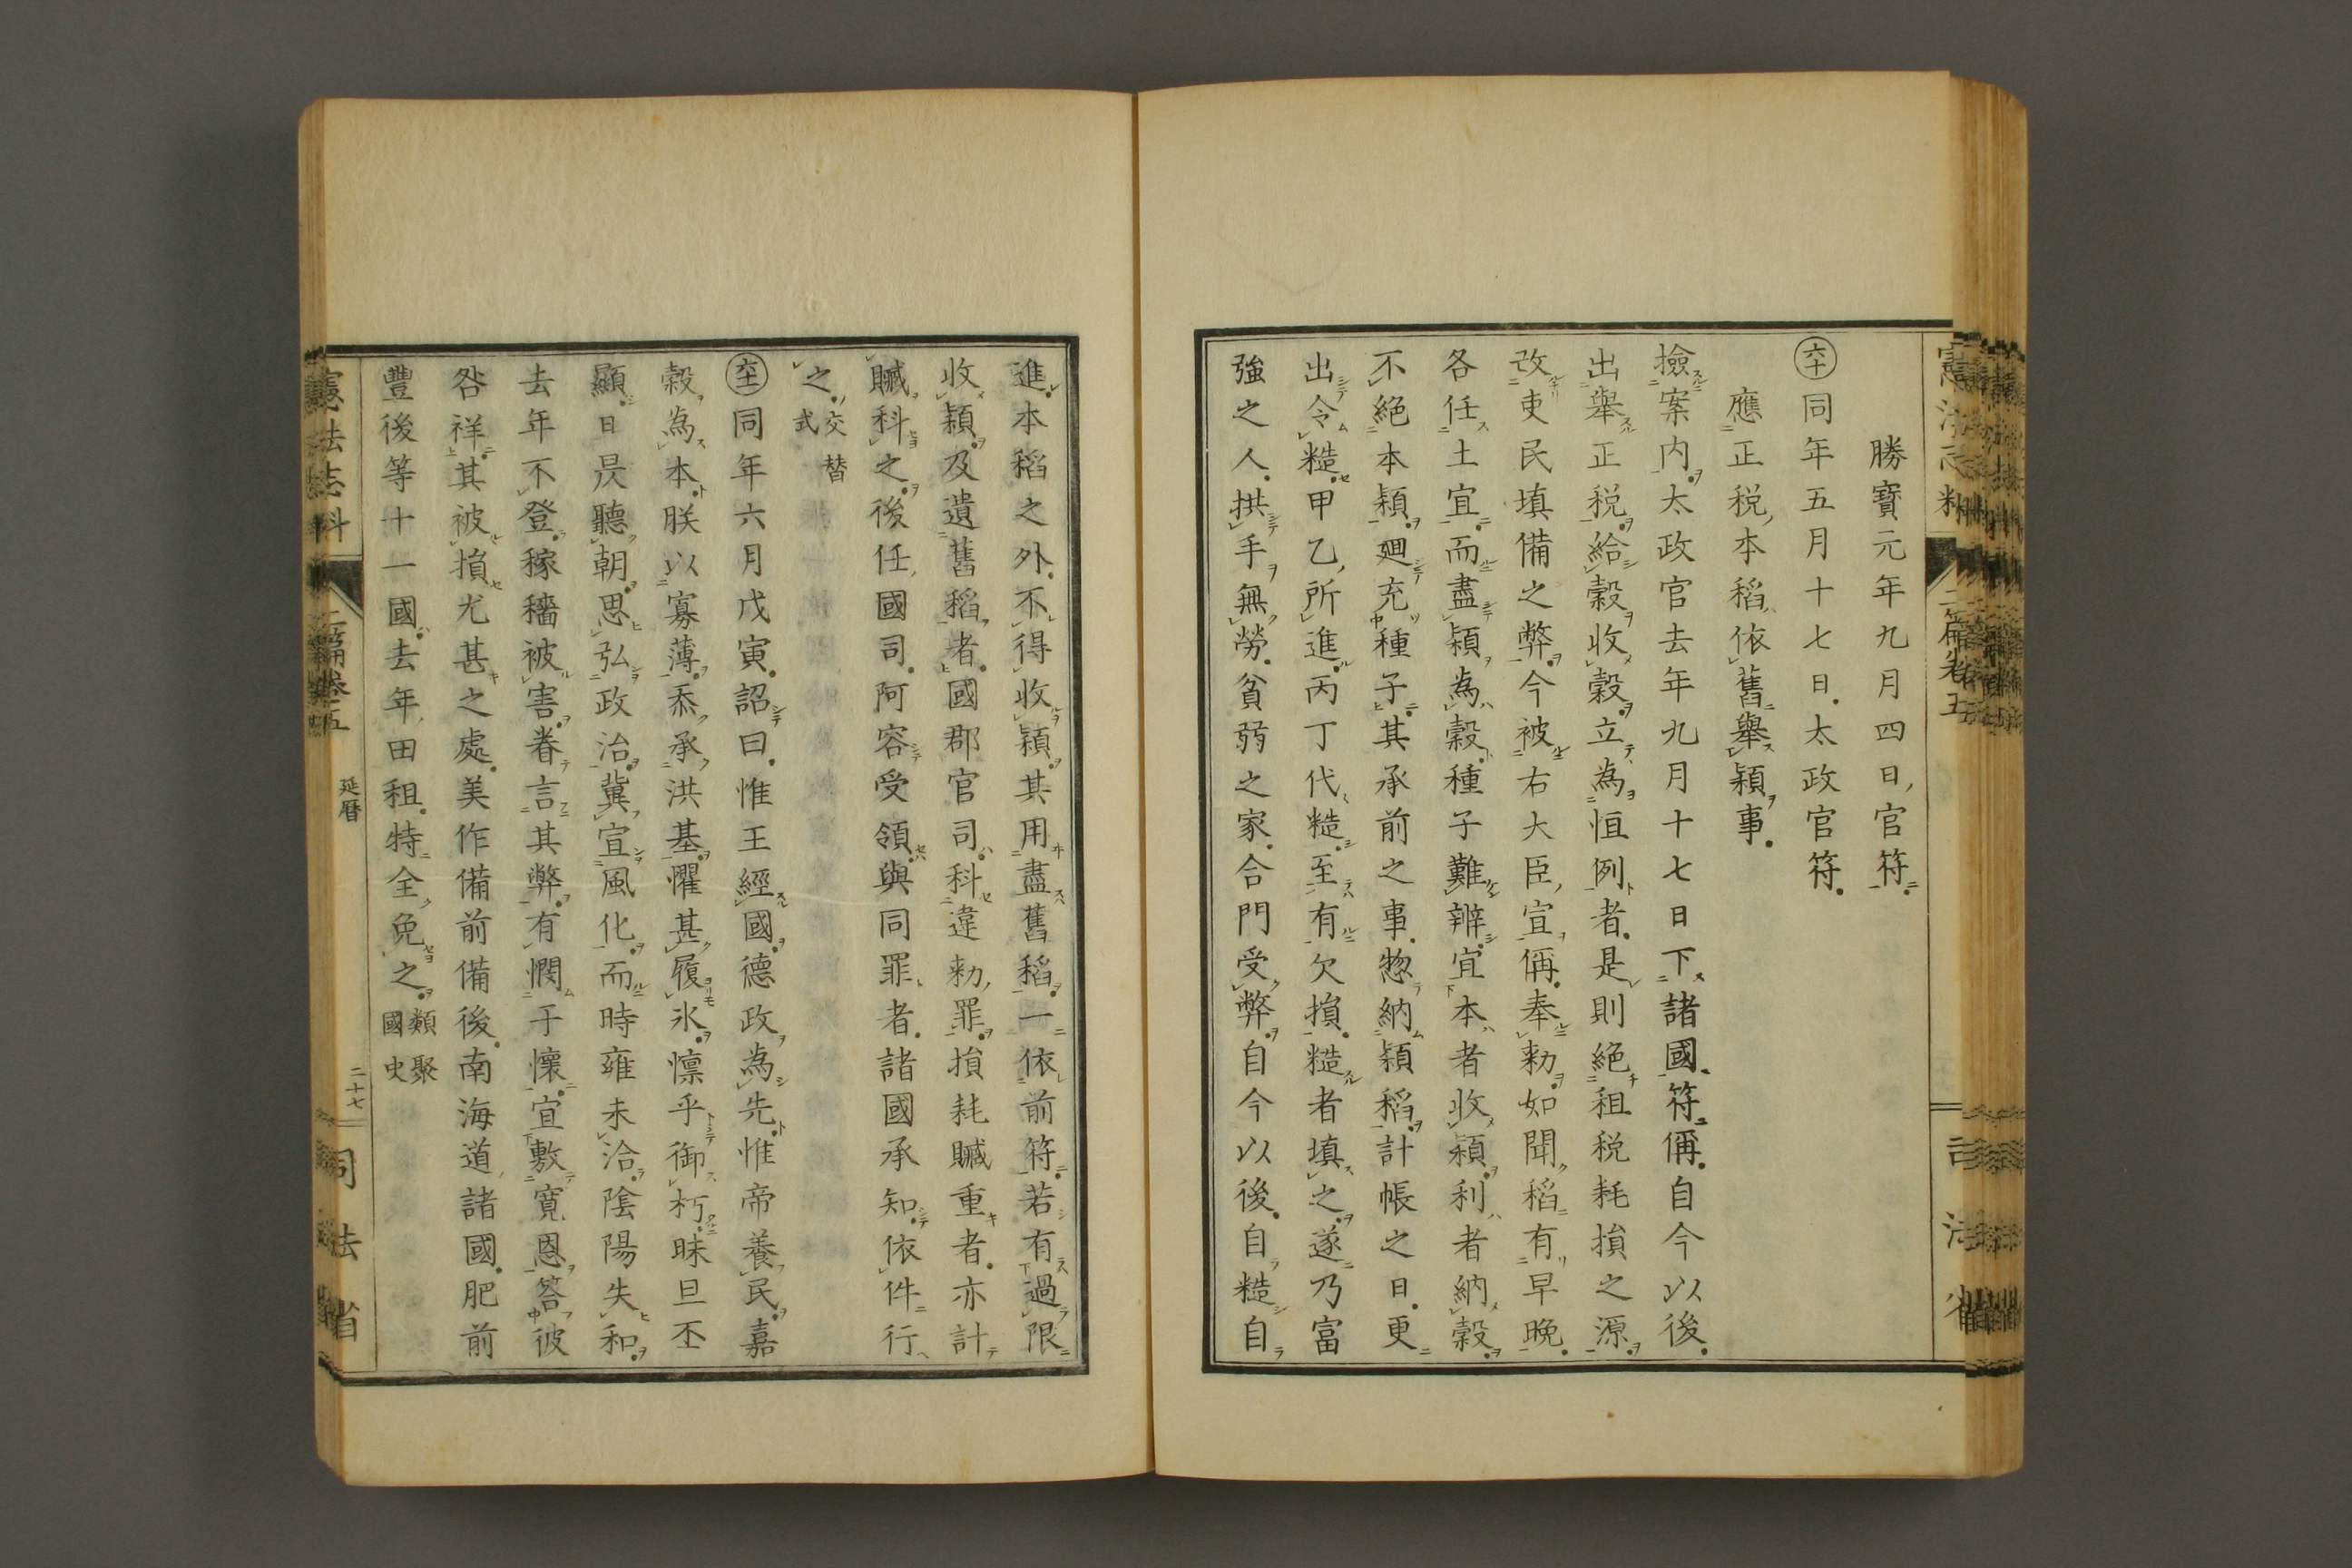 勝寶元年九月四日官符
六十同年五月十七日太政官符
應正税本稻依舊舉穎事
撿案内太政官去年九月十七日下諸國符偁自今以後
出舉正税給穀收穀立為恒例者是則絕租税耗損之源
改吏民填備之弊今被右大臣宣偁奉勅如聞稻有早晚
各任土宜而盡穎為穀種子難辨宜本者收穎利者納穀
不絕本穎廻充種子其承前之事惣納穎稻計帳之日更
出令糙甲乙所進丙丁代糙至有欠損糙者填之遂乃富
強之人拱手無勞貧弱之家合門受弊自今以後自糙自
進本稻之外不得收穎其用盡舊稻一依前符若有過限
收穎及遺舊稻者國郡官司科違勅罪損耗贓重者亦計
贓科之後任國司阿容受領與同罪者諸國承知依件行
之交替式
六十一同年六月戊寅詔曰惟王經國德政為先惟帝養民嘉
穀為本朕以寡薄忝承洪基懼甚履氷懍乎御朽昧旦丕
顯日昃聽朝思弘政治冀宣風化而時雍未洽陰陽失和
去年不登稼穡被害眷言其弊有憫于懷宜敷寬恩答彼
咎祥其被損尤甚之處美作備前備後南海道諸國肥前
豐後等十一國去年田租特全免之類聚國史
憲法志料
二篇卷五
延暦
二十七
司法省